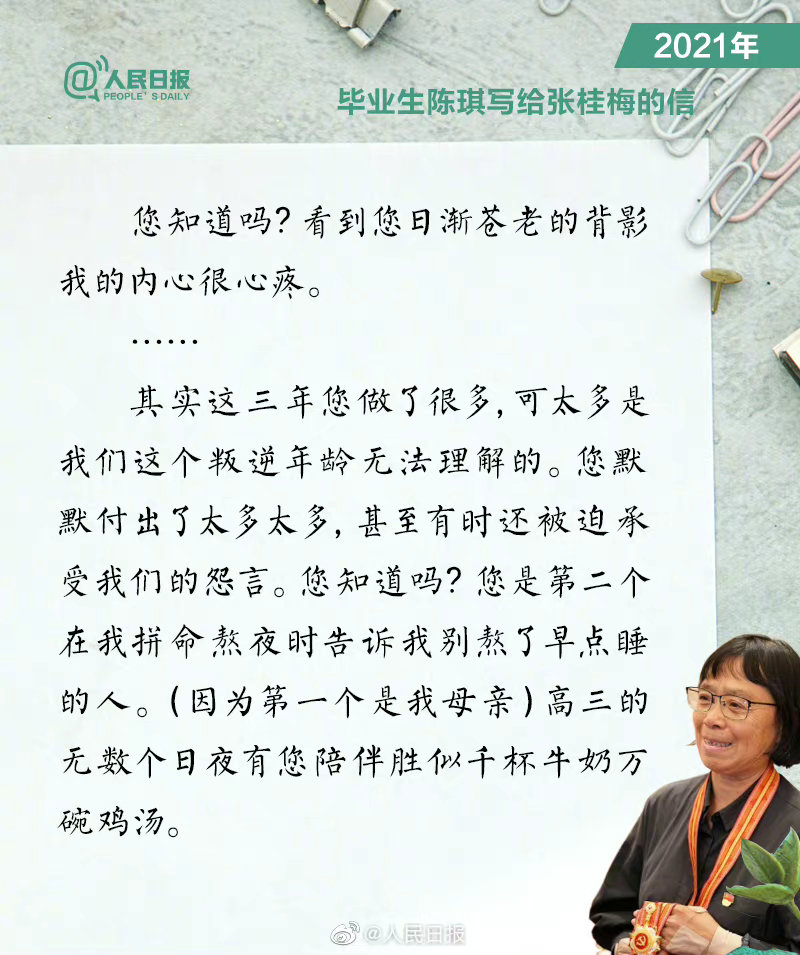 2021年
@人民日报
PEOPLE'S DAILY
毕业生陈琪写给张桂梅的信
您知道吗？看到您日渐苍老的背影
我的内心很心疼。
……
其实这三年您做了很多，可太多是
我们这个叛逆年龄无法理解的。您默
默付出了太多太多，甚至有时还被迫承
受我们的怨言。您知道吗？您是第二个
在我拼命熬夜时告诉我别熬了早点睡
的人。(因为第一个是我母亲)高三的
无数个日夜有您陪伴胜似千杯牛奶万
碗鸡汤。
@人民日报